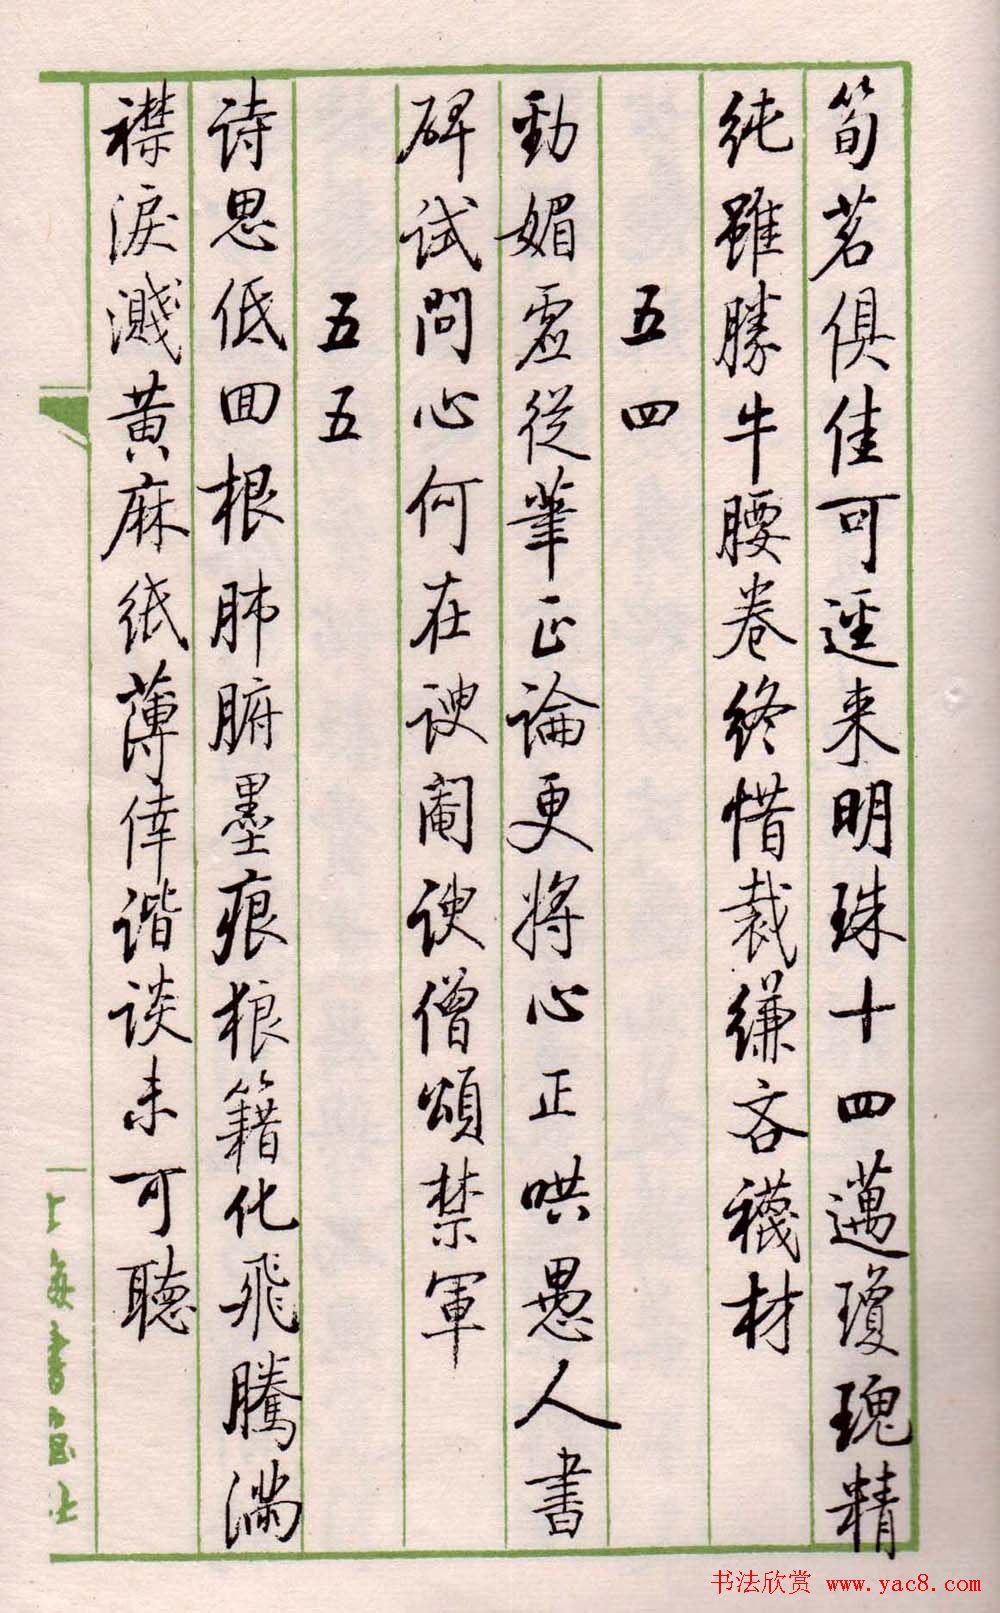 筍茗俱佳可逕来明珠十四邁瓊瑰精
纯雖勝牛腰卷终惜裁缣吝襪材
五四
勁媚虛從筆正論更將心正哄愚人書
碑試問心何在諛阉諛僧頌禁軍
五五
诗思低回根肺腑墨痕狼籍化飛騰满
襟淚濺黄麻纸薄倖谐谈未可聽
上海書画社
书法欣赏 www.yac8.com